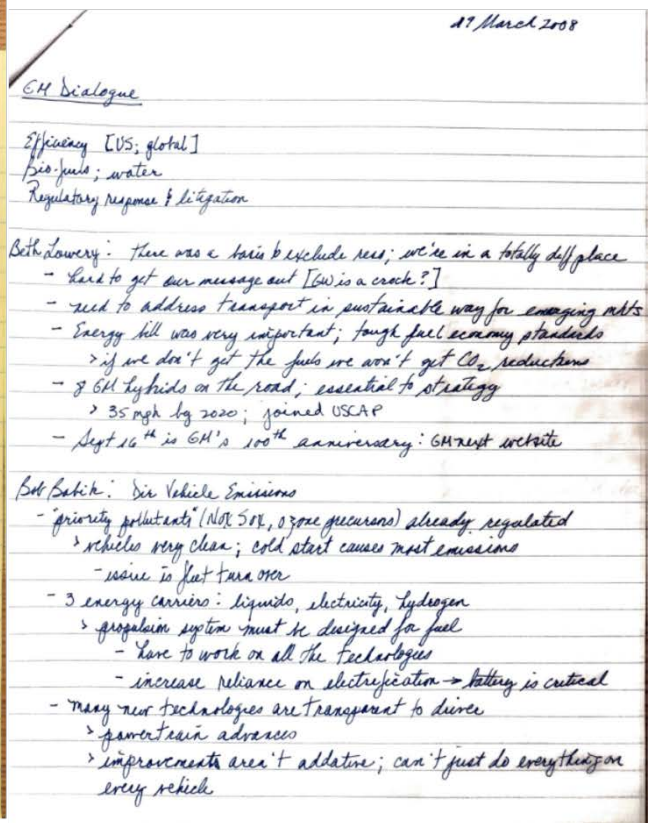 19 March 2008
GM Dialogue
Efficiency [US; global]
Bio-fuels; water
Regulatory response & litigation
Beth Lowery: there was a basis to exclude ress; we're in a totally diff place
- hard to get our message out [GW is a crock?]
- need to address transport in sustainable way for emerging mkts
- Energy bill was very important; tough fuel economy standards
> if we don't get the fuels we won't get CO2 reductions
- 8 GM hybrids on the road; essential to strategy
> 35 mph by 2020; joined USCAP
- Sept 16th is GM's 100th anniversary: GMnext website
Bob Babik: Dir Vehicle Emissions
- "priority pollutants" (NOX SOX, ozone precursors) already regulated
> vehicles very clean; cold start causes most emissions
- issue is fleet turn over
- 3 energy carriers: liquids, electricity, hydrogen
> propulsion system must be designed for fuel
- have to work on all the technologies
- increase reliance on electrification → battery is critical
- many new technologies are transparent to driver
> powertrain advances
> improvements aren't addative; can't just do everything on
every vehicle